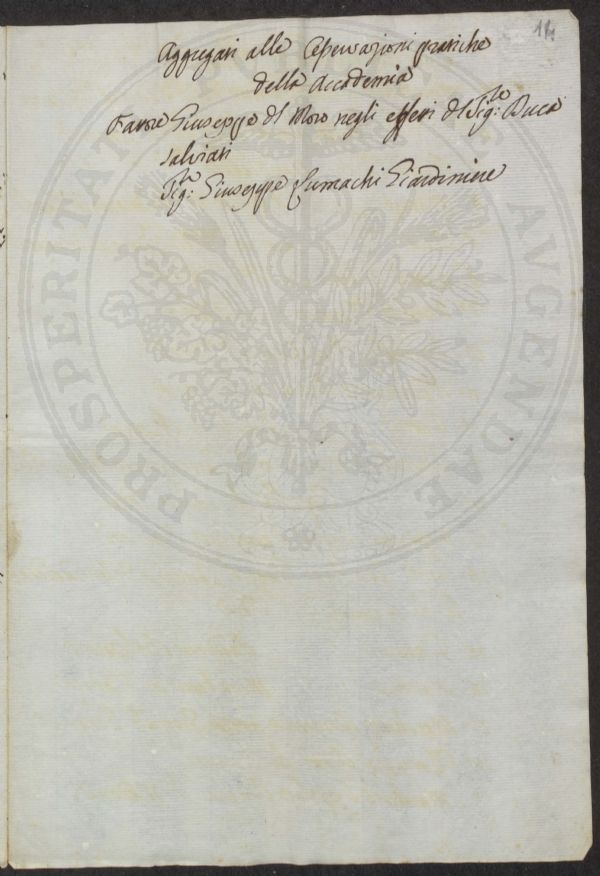 14
Aggregati alle Osservazioni pratiche
della Accademia
Fattore Giuseppe del Moro negli effetti del Sig:re Duca
Salviati
Sig:re Giuseppe Giardiniere
PUBLICAE PROSPERITATI AUGENDAE